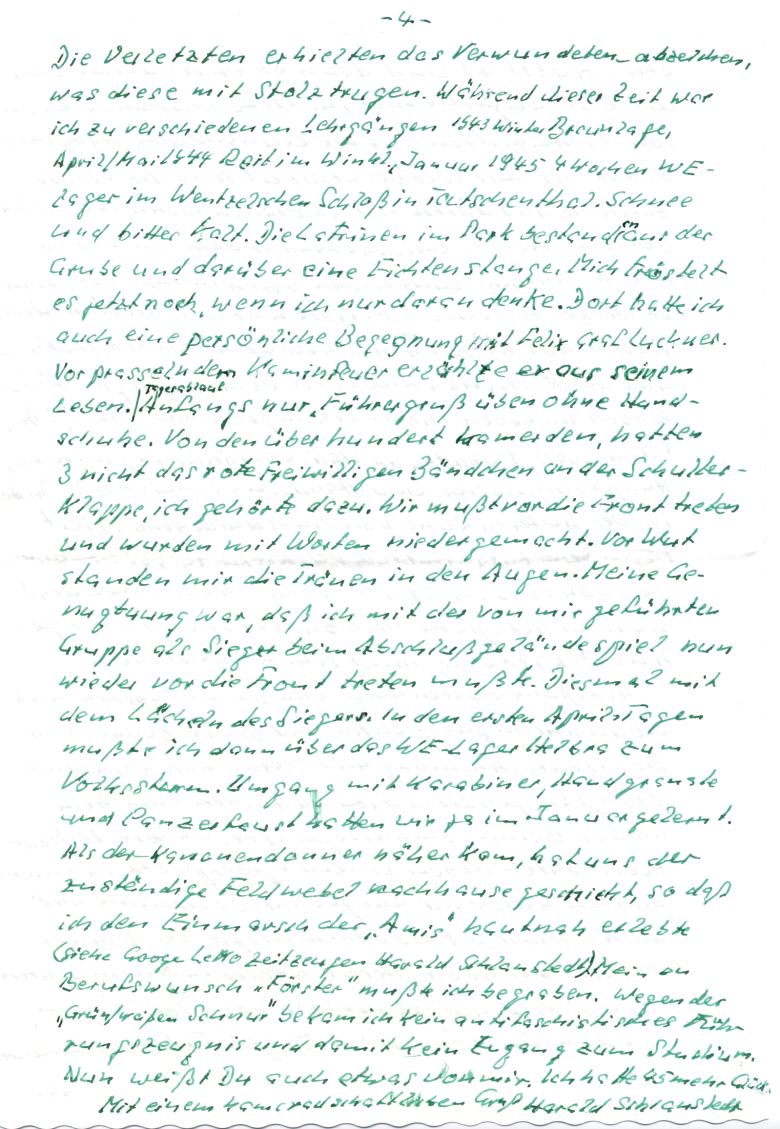 -4-
Die Verletzten erhielten das Verwundeten-abzeichen,
was diese mit Stolz trugen. Während dieser Zeit war
ich zu verschiedenen Lehrgängen 1943 Winter Braunlage,
April/Mai 1944 Reit im Winkl., Januar 1945 4 Wochen WE-
Lager im Wentzelschen Schloß in Teutschenthal. Schnee
und bitter kalt. Die Latrinen im Park bestanden aus der
Grube und darüber eine Fichtenstange. Mich fröstelt
es jetzt noch, wenn ich nur daran denke. Dort hatte ich
auch eine persönliche Begegnung mit Felix Graf Luckner.
Vor prasselndem Kaminfeuer erzählte er aus seinem
Tagesablauf
Leben. / Anfangs nur „Führergruß üben ohne Hand-
schuhe. Von den über hundert Kameraden, hatten
3 nicht das rote Freiwilligen Bändchen an der Schulter-
Klappe, ich gehörte dazu. Wir mußt vor die Front treten
und wurden mit Worten niedergemacht. Vor Wut
standen mir die Tränen in den Augen. Meine Ge-
nugtuung war, daß ich mit der von mir geführten
Gruppe als Sieger beim Abschlußgeländespiel nun
wieder vor die Front treten mußte. Diesmal mit
dem Lächeln des Siegers. In den ersten April Tagen
mußte ich dann über das WE-Lager Helbra zum
Volkssturm. Umgang mit Karabiner, Handgranate
und Panzerfaust hatten wir ja im Januar gelernt.
Als der Kanonendonner näher kam, hat uns der
zuständige Feldwebel nachhause geschickt, so daß
ich den Einmarsch der „Amis" hautnah erlebte
(siehe Googe Zeitzeugen Harald Schlanstedt) Mein
Berufswunsch „Förster" mußte ich begraben. Wegen der
„Grün/weißen Schnur" bekam ich kein antifaschistisches Füh-
rungszeugnis und damit kein Zugang zum Studium.
Nun weißt Du auch etwas von mir. Ich hatte 45 mehr Glück.
Mit einem kameradschaftlichen Gruß Harald Schlanstedt